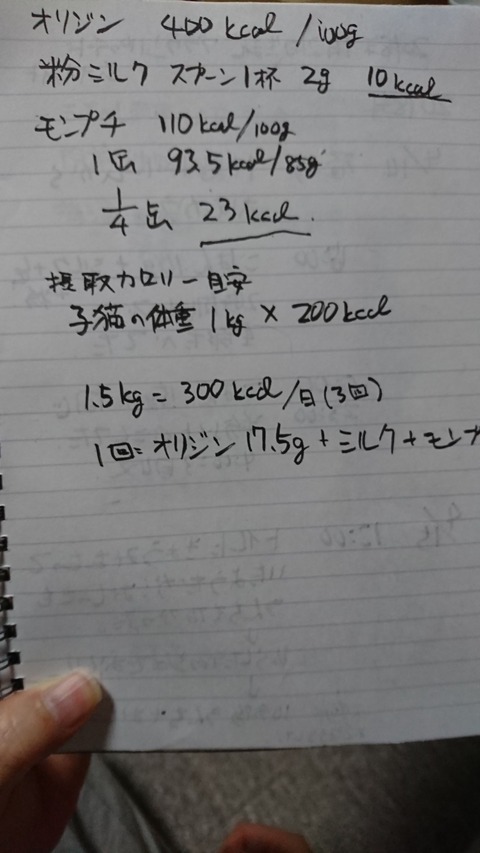 オリジン 400kcal/100g
粉ミルク スプーン1杯 2g 10kcal
モンプチ 110kcal/100g
1缶 93.5kcal/85g
1/4缶 23kcal.
摂取カロリー目安
子猫の体重1kg×200kcal
1.5kg=300kcal/日(3回)
1回=オリジン17.5g+ミルク+モンプ